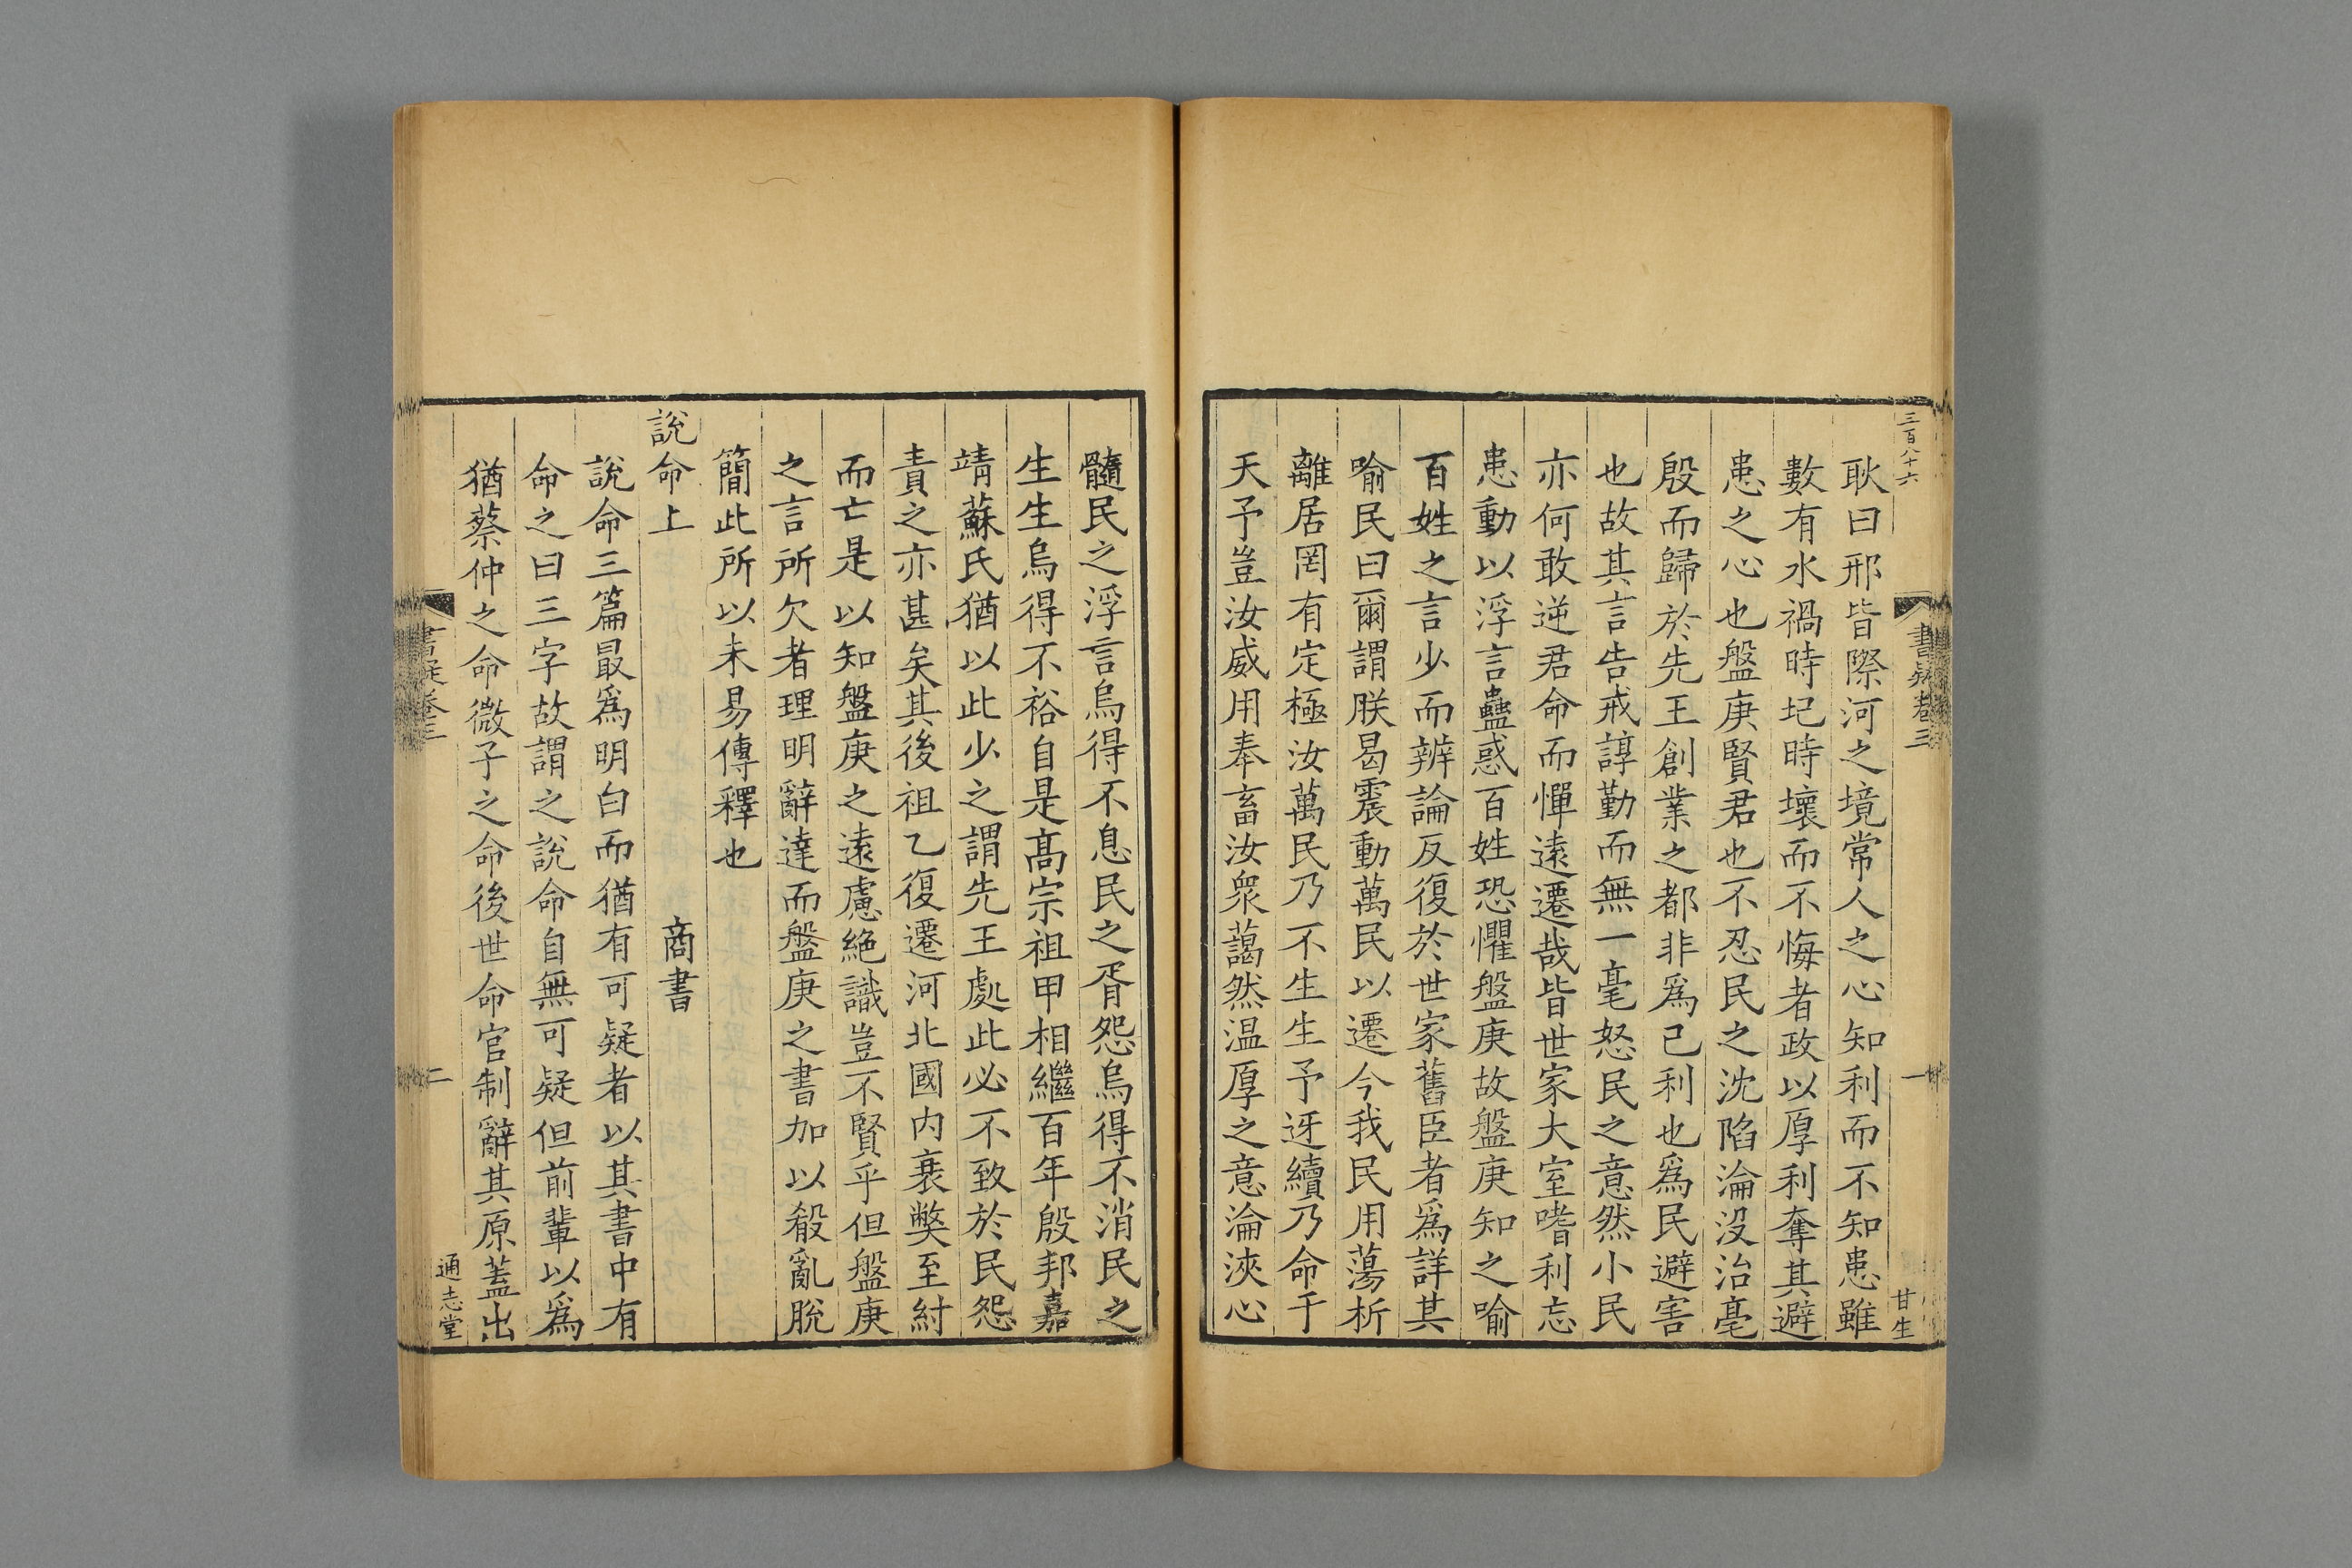 三百八十六
書疑卷三
一
甘生
耿曰邢皆際河之境常人之心知利而不知患雖
數有水禍時圮時壞而不悔者政以厚利奪其避
患之心也盤庚賢君也不忍民之沈陷淪沒治亳
殷而歸於先王創業之都非爲己利也爲民避害
也故其言告戒諄勤而無一毫怒民之意然小民
亦何敢逆君命而憚遠遷哉皆世家大室嗜利忘
患動以浮言蠱惑百姓恐懼盤庚故盤庚知之喻
百姓之言少而辨論反復於世家舊臣者爲詳其
喻民曰爾謂朕曷震動萬民以遷今我民用蕩析
離居罔有定極汝萬民乃不生生予迓續乃命于
天予豈汝威用奉畜汝衆藹然温厚之意淪浹心
髓民之浮言烏得不息民之胥怨烏得不消民之
生生烏得不裕自是髙宗祖甲相繼百年殷邦嘉
靖蘇氏猶以此少之謂先王處此必不致於民怨
責之亦甚矣其後祖乙復遷河北國内衰獘至紂
而亡是以知盤庚之遠慮絶識豈不賢乎但盤庚
之言所欠者理明辭達而盤庚之書加以殽亂脫
簡此所以未易傳釋也
說命上 商書
說命三篇最爲明白而猶有可疑者以其書中有
命之曰三字故謂之說命自無可疑但前輩以爲
猶蔡仲之命微子之命後世命官制辭其原蓋出
書疑卷三
二
通志堂